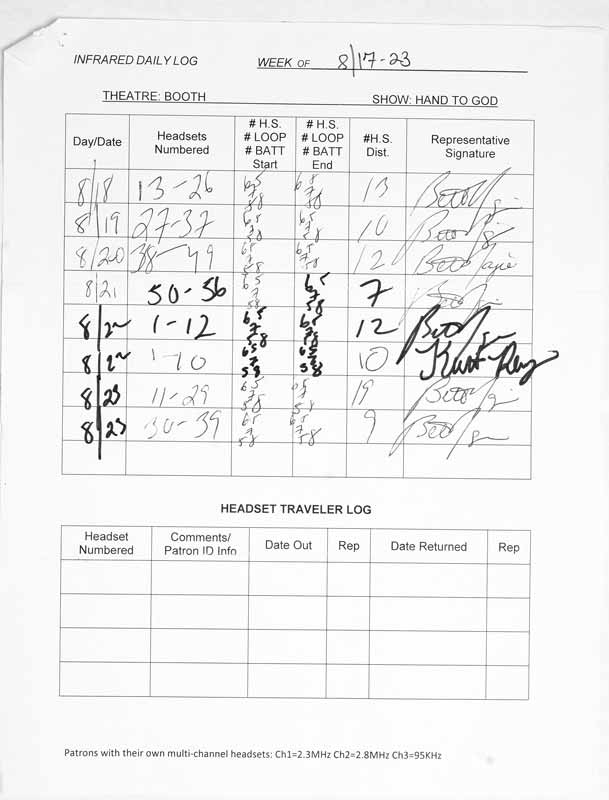 INFRARED DAILY LOG WEEK OF 8/17-23
THEATRE: BOOTH SHOW: HAND TO GOD
Day/Date Headsets Numbered # H.S. # LOOP # BATT Start # H.S. # LOOP # BATT End #H.S. Dist. Representative Signature
8/18 13-26 65 7 58 65 7 58 13
8/19 27-37 65 7 58 65 7 58 10
8/20 38-49 65 7 58 65 7 58 12
8/21 50-56 65 7 58 65 7 58 7
8/22 1-12 65 7 58 65 7 58 12
8/22 1-10 65 7 58 65 7 58 10
8/23 11-29 65 7 58 65 7 58 19
8/23 30-39 65 7 58 65 7 58 9
HEADSET TRAVELER LOG
Headset Numbered Comments/ Patron ID Info Date Out Rep Date Returned Rep
Patrons with their own multi-channel headsets: Ch1=2.3MHz Ch2=2.8MHz Ch3=95KHz